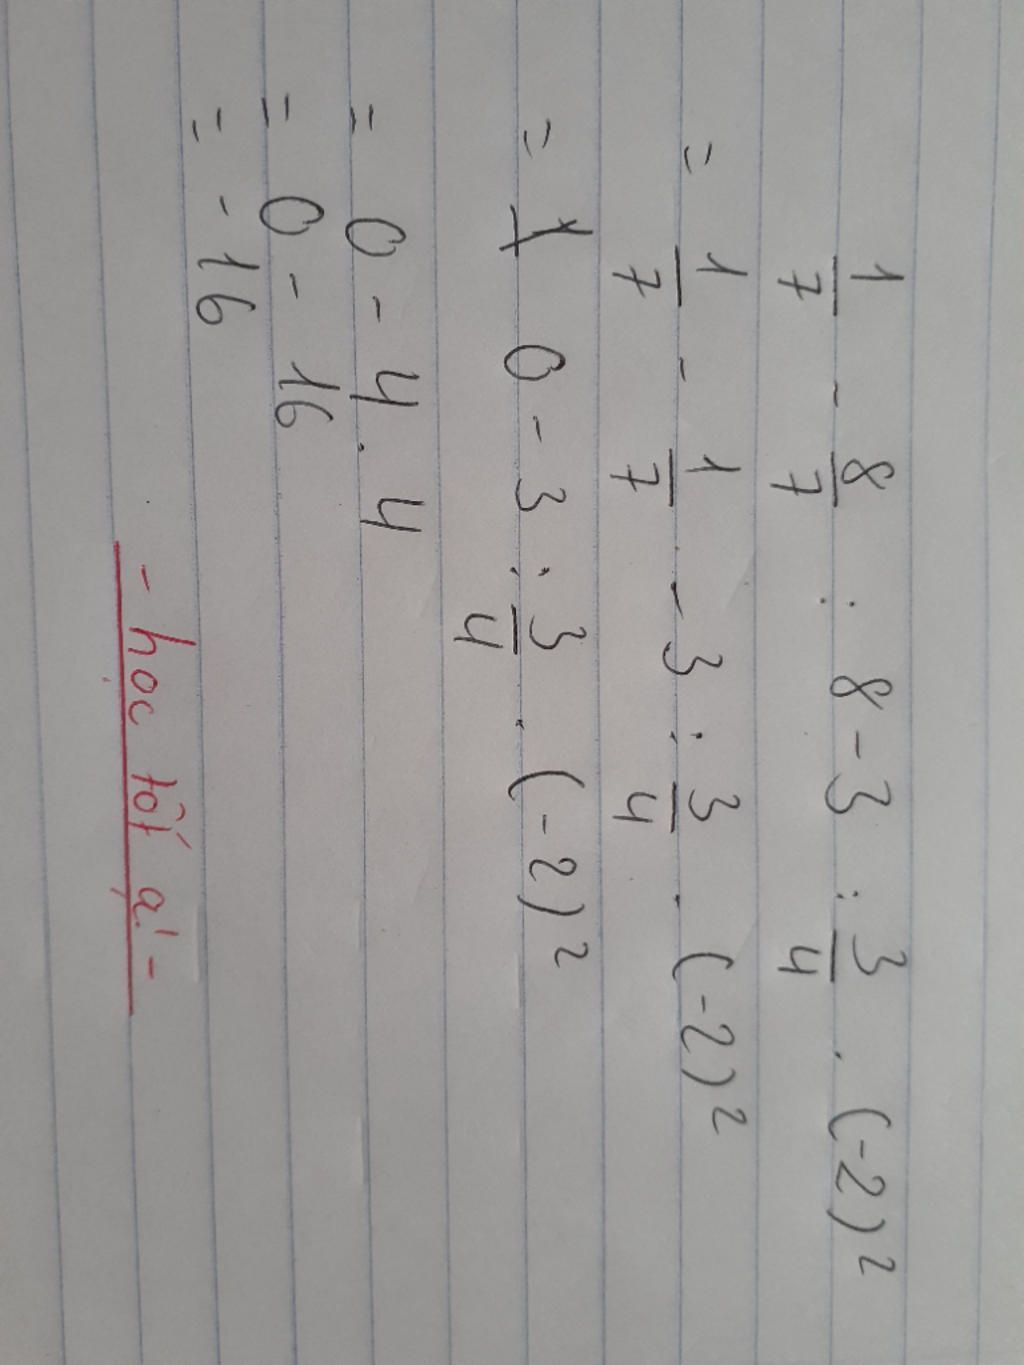 1/7 - 8/7 : 8 - 3 : 3/4 . (-2)²
= 1/7 - 1/7 - 3 : 3/4 . (-2)²
= 0 - 3 : 3/4 . (-2)²
= 0 - 4 . 4
= 0 - 16
= -16
- học tốt ạ! -